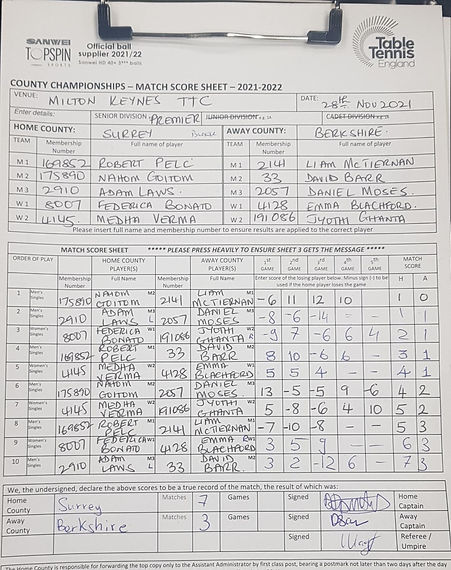 SANWEI
TOPSPIN
SPORTS
Official ball
supplier 2021/22
Sanwei HD 40+ 3*** balls
Table
Tennis
England
COUNTY CHAMPIONSHIPS – MATCH SCORE SHEET – 2021-2022
VENUE: MILTON KEYNES TTC DATE: 28th NOV 2021
Enter details: SENIOR DIVISION PREMIER JUNIOR DIVISION CADET DIVISION
HOME COUNTY: SURREY AWAY COUNTY: BERKSHIRE
TEAM Membership Number Full name of player TEAM Membership Number Full name of player
M 1 169852 ROBERT PELC M 1 2141 LIAM McTIERNAN
M 2 175890 NAHOM GOITOM M 2 33 DAVID BARR
M 3 2910 ADAM LAWS M 3 2057 DANIEL MOSES
W 1 8007 FEDERICA BONATO W 1 4128 EMMA BLACHFORD
W 2 4145 MEDHA VERMA W 2 191086 JYOTHI GHANTA
Please insert full name and membership number to ensure results are applied to the correct player
MATCH SCORE SHEET ***** PLEASE PRESS HEAVILY TO ENSURE SHEET 3 GETS THE MESSAGE *****
ORDER OF PLAY HOME COUNTY PLAYER(S) AWAY COUNTY PLAYER(S) 1st GAME 2nd GAME 3rd GAME 4th GAME 5th GAME MATCH SCORE
Membership Number Full Name Membership Number Full Name Enter score of the losing player below. Minus sign (-) to be used if the home player loses the game H A
1 Men's Singles 175890 NAHOM GOITOM M2 2141 LIAM McTIERNAN M1 -6 11 12 10 1 0
2 Men's Singles 2910 ADAM LAWS 2057 DANIEL MOSES M3 -8 -6 -14 - 1 1
3 Women's Singles 8007 FEDERICA BONATO W1 191086 JYOTHI GHANTA W2 -9 7 -6 6 4 2 1
4 Men's Singles 169852 ROBERT PELC M1 33 DAVID BARR M2 8 10 -6 6 3 1
5 Women's Singles 4145 MEDHA VERMA W2 4128 EMMA BLACHFORD W1 5 5 4 - 4 1
6 Men's Singles 175890 NAHOM GOITOM M2 2057 DANIEL MOSES M3 13 -5 -5 9 -6 4 2
7 Women's Singles 4145 MEDHA VERMA W2 191086 JYOTHI GHANTA W2 5 -8 -6 4 10 5 2
8 Men's Singles 169852 ROBERT PELC M1 2141 LIAM McTIERNAN M1 -7 -10 -8 - 5 3
9 Women's Singles 8007 FEDERICA BONATO W1 4128 EMMA BLACHFORD W1 3 5 9 - 6 3
10 Men's Singles 2910 ADAM LAWS 33 DAVID BARR M2 3 2 -12 6 7 3
We, the undersigned, declare the above scores to be a true record of the match, the result of which was:
Home County Surrey Matches 7 Games Signed Home Captain
Away County Berkshire Matches 3 Games Signed DBarr Away Captain
Signed Referee / Umpire
The Home County is responsible for forwarding the top copy only to the Assistant Administrator by first class post, bearing a postmark not later than two days after the day